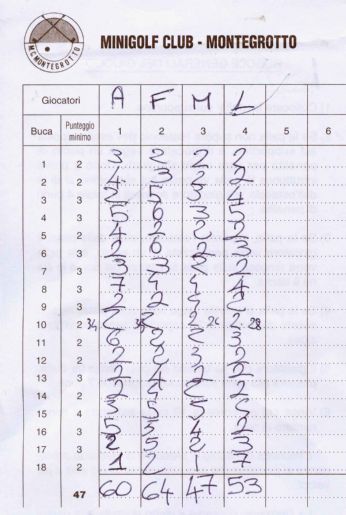 MC MONTEGROTTO
MINIGOLF CLUB - MONTEGROTTO
Giocatori A F M L
Buca Punteggio minimo 1 2 3 4 5 6
1 2 3 2 2 2
2 2 4 3 2 2
3 3 2 5 3 4
4 3 5 6 3 5
5 2 4 2 2 2
6 3 2 6 2 3
7 3 3 3 2 2
8 3 7 4 4 4
9 3 2 2 4 2
10 2 34 2 35 2 2 26 2 28
11 2 6 2 2 3
12 2 2 2 3 2
13 3 2 4 2 2
14 2 2 2
15 4 3 5 5
16 3 5 3 4 2
17 3 2 5 2 3
18 2 1 2 1 7
47 60 64 47 53